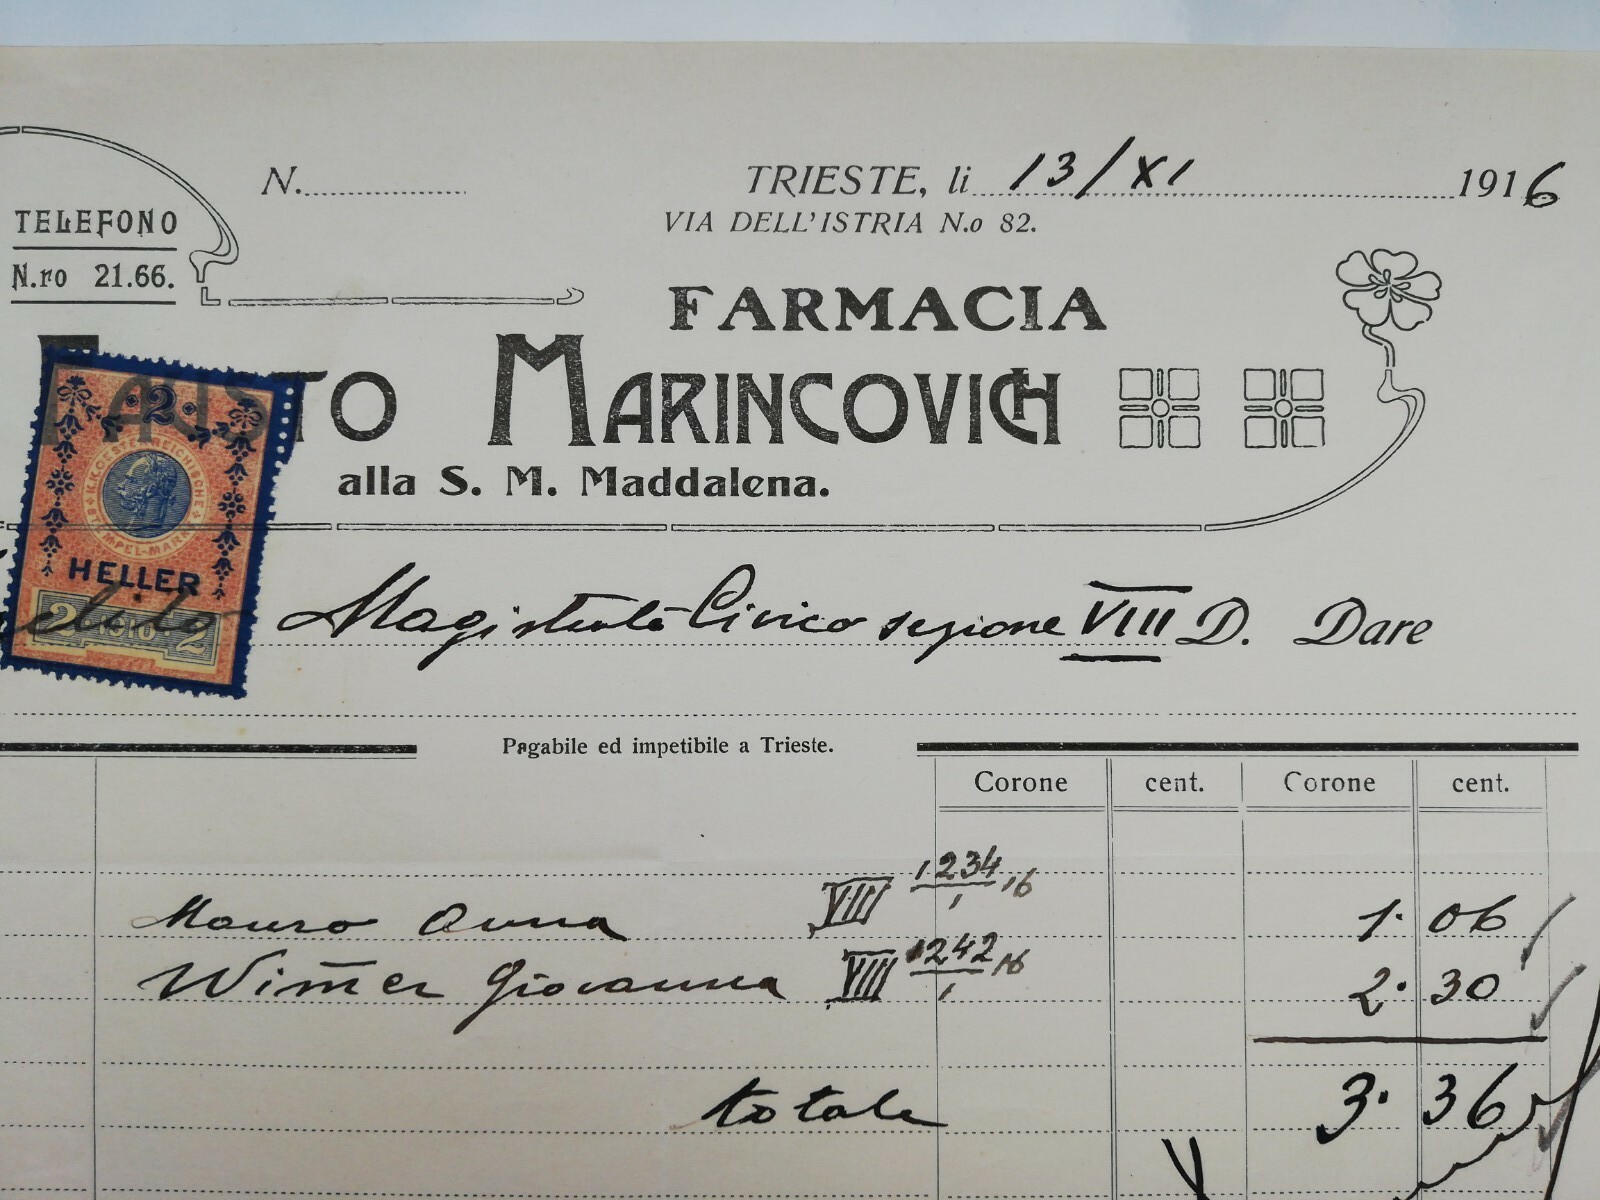 N. TRIESTE, li 13/XI 1916
TELEFONO
VIA DELL'ISTRIA N.o 82.
N.ro 21.66.
FARMACIA
FAUSTO MARINCOVICH
alla S. M. Maddalena.
2
K.K. OESTERREICHISCHE STEMPEL-MARKE
HELLER
2 1910 2
Magistrato Civico sezione VIII D. Dare
Pagabile ed impetibile a Trieste.
Corone cent. Corone cent.
Mauro Anna VIII 1234/1 16 1. 06
Wim̄er Giovanna VIII 1242/1 16 2. 30
totale 3. 36